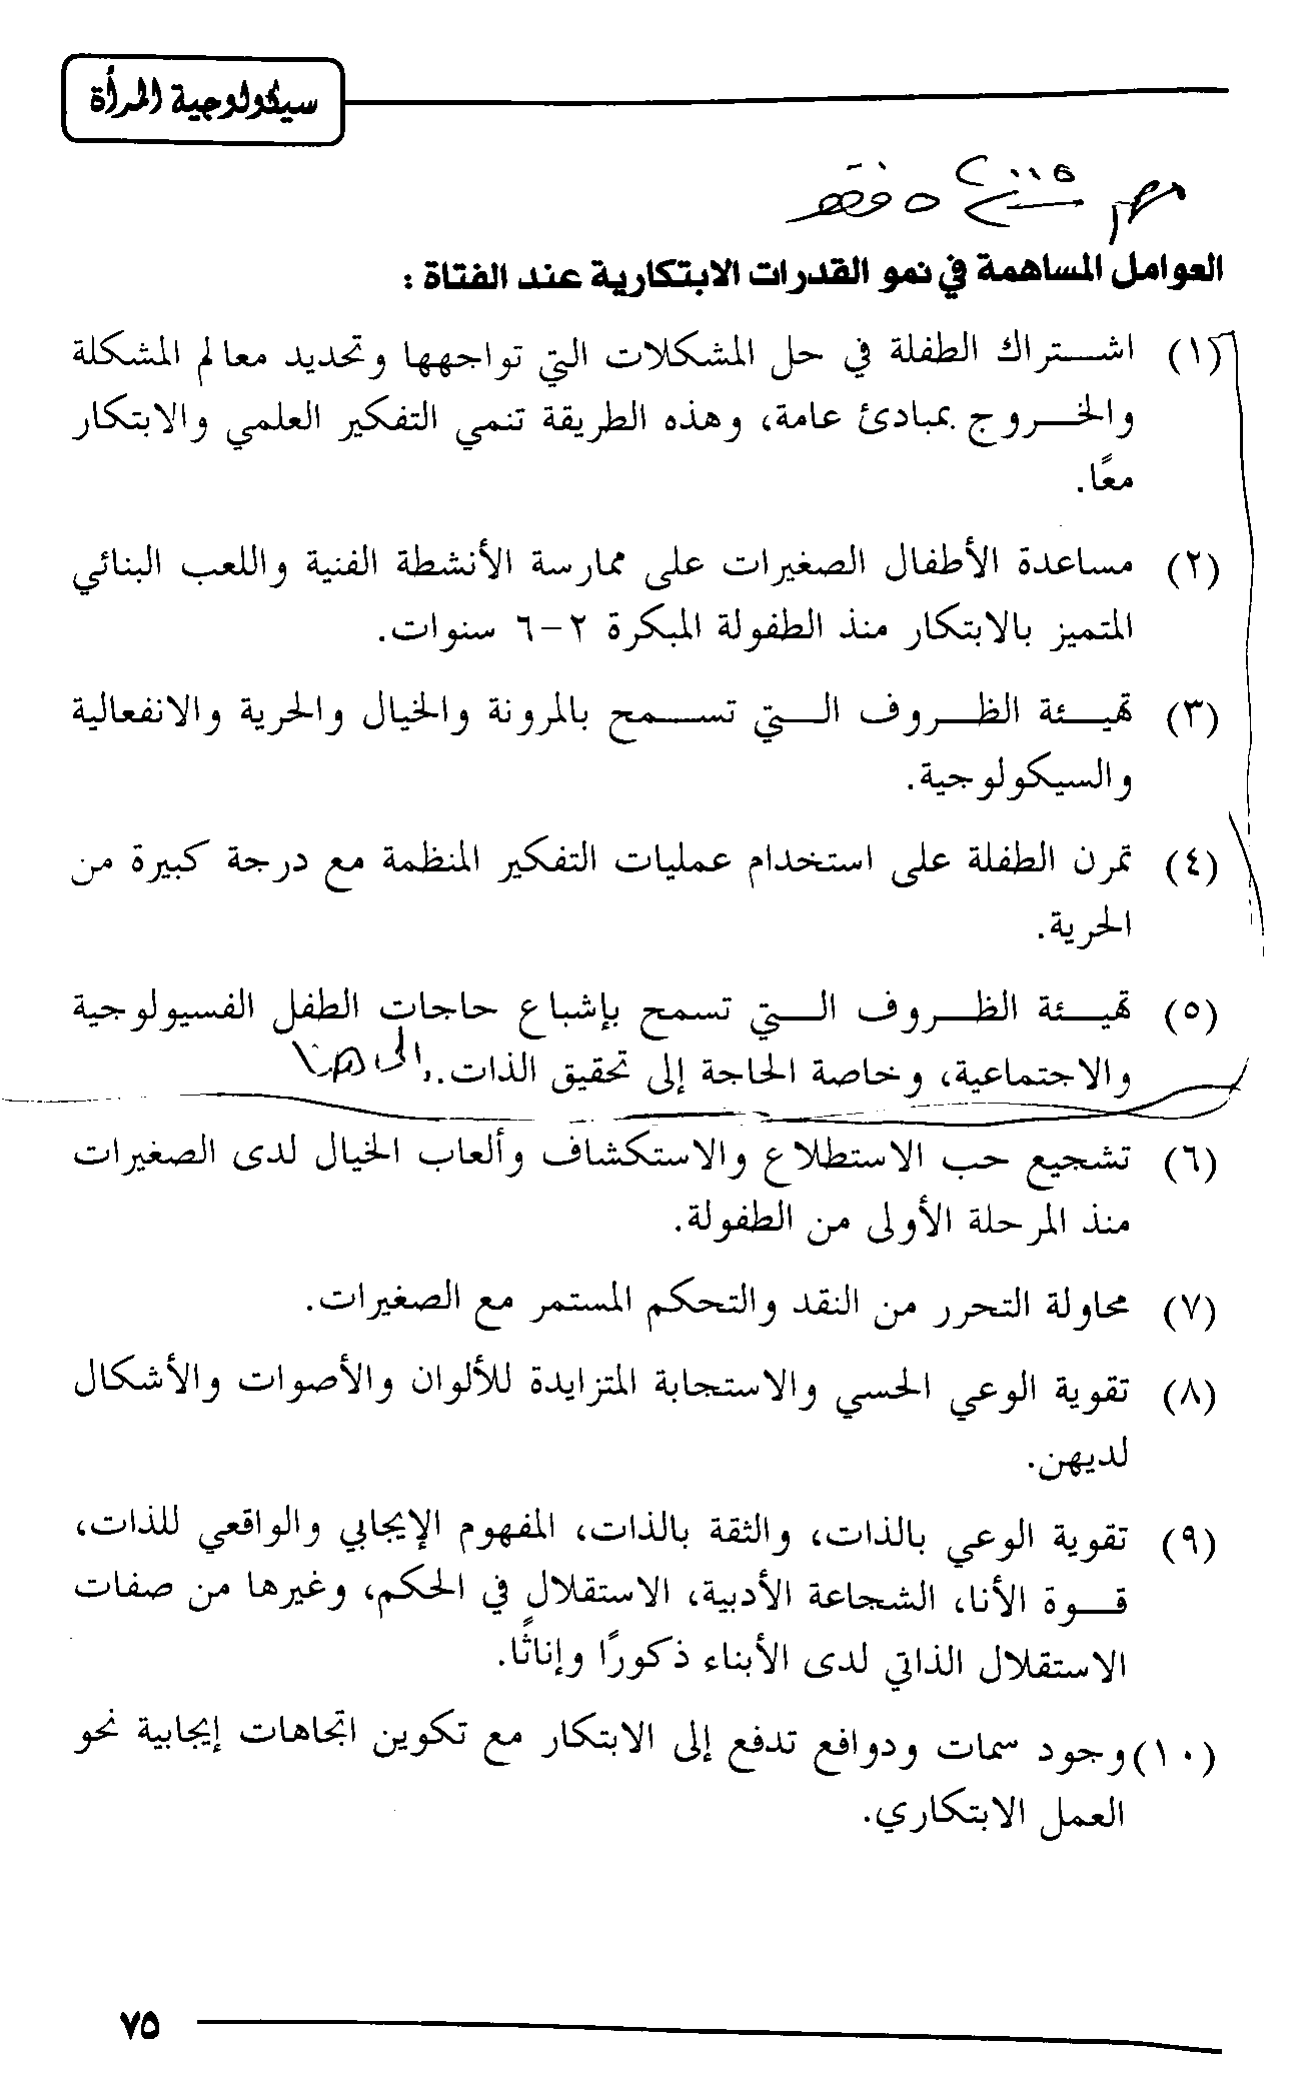 سيكولوجية المرأة
مهم
٥ فقط
العوامل المساهمة في نمو القدرات الابتكارية عند الفتاة :
(١) اشتراك الطفلة في حل المشكلات التي تواجهها وتحديد معالم المشكلة
والخروج بمبادئ عامة، وهذه الطريقة تنمي التفكير العلمي والابتكار
معًا.
(٢) مساعدة الأطفال الصغيرات على ممارسة الأنشطة الفنية واللعب البنائي
المتميز بالابتكار منذ الطفولة المبكرة ٢-٦ سنوات.
(٣) تهيئة الظروف التي تسمح بالمرونة والخيال والحرية والانفعالية
والسيكولوجية.
(٤) تمرن الطفلة على استخدام عمليات التفكير المنظمة مع درجة كبيرة من
الحرية.
(٥) تهيئة الظروف التي تسمح بإشباع حاجات الطفل الفسيولوجية
والاجتماعية، وخاصة الحاجة إلى تحقيق الذات. الى هنا
(٦) تشجيع حب الاستطلاع والاستكشاف وألعاب الخيال لدى الصغيرات
منذ المرحلة الأولى من الطفولة.
(٧) محاولة التحرر من النقد والتحكم المستمر مع الصغيرات.
(٨) تقوية الوعي الحسي والاستجابة المتزايدة للألوان والأصوات والأشكال
لديهن.
(٩) تقوية الوعي بالذات، والثقة بالذات، المفهوم الإيجابي والواقعي للذات،
قوة الأنا، الشجاعة الأدبية، الاستقلال في الحكم، وغيرها من صفات
الاستقلال الذاتي لدى الأبناء ذكورًا وإناثًا.
(١٠) وجود سمات ودوافع تدفع إلى الابتكار مع تكوين اتجاهات إيجابية نحو
العمل الابتكاري.
٧٥